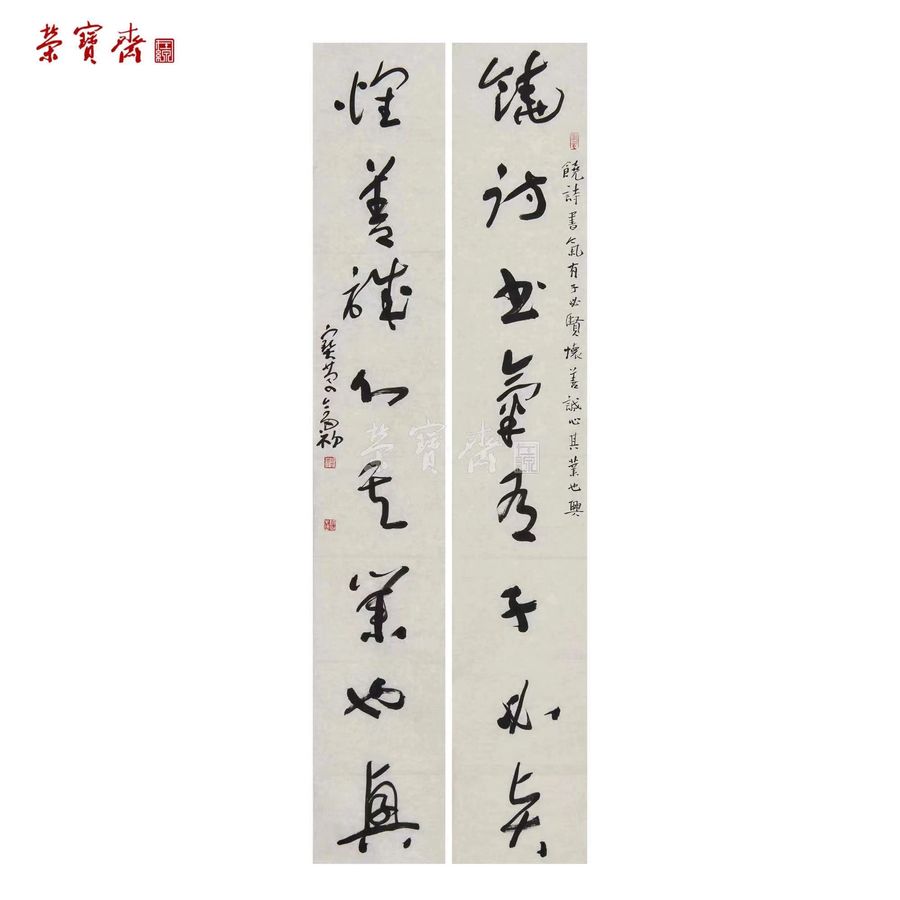 榮寶齋
饒詩書氣有子必賢
饒詩書氣有子必賢懷善誠心其業也興
懷善誠心其業也興
榮寶齋